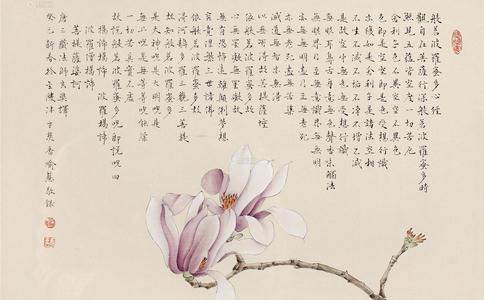 般若波羅蜜多心經
觀自在菩薩行深般若波羅蜜多時
照見五蘊皆空度一切苦厄
舍利子色不異空空不異色
色即是空空即是色受想行識
亦復如是舍利子是諸法空相
不生不滅不垢不淨不增不減
是故空中無色無受想行識
無眼耳鼻舌身意無色聲香味觸法
無眼界乃至無意識界無無明
亦無無明盡乃至無老死
亦無老死盡無苦集
滅道無智亦無得
以無所得故菩提薩埵
依般若波羅蜜多故
心無罣礙無罣礙故
無有恐怖遠離顛倒夢想
究竟涅槃三世諸佛
依般若波羅蜜多故
得阿耨多羅三藐三菩提
故知般若波羅蜜多
是大神咒是大明咒是
無上咒是無等等咒能除
一切苦真實不虛
故說般若波羅蜜多咒即說咒曰
揭諦揭諦 波羅揭諦
波羅僧揭諦
菩提薩婆訶
唐三藏法師玄奘譯
癸巳新春於金陵沐手焚香喻慧敬錄